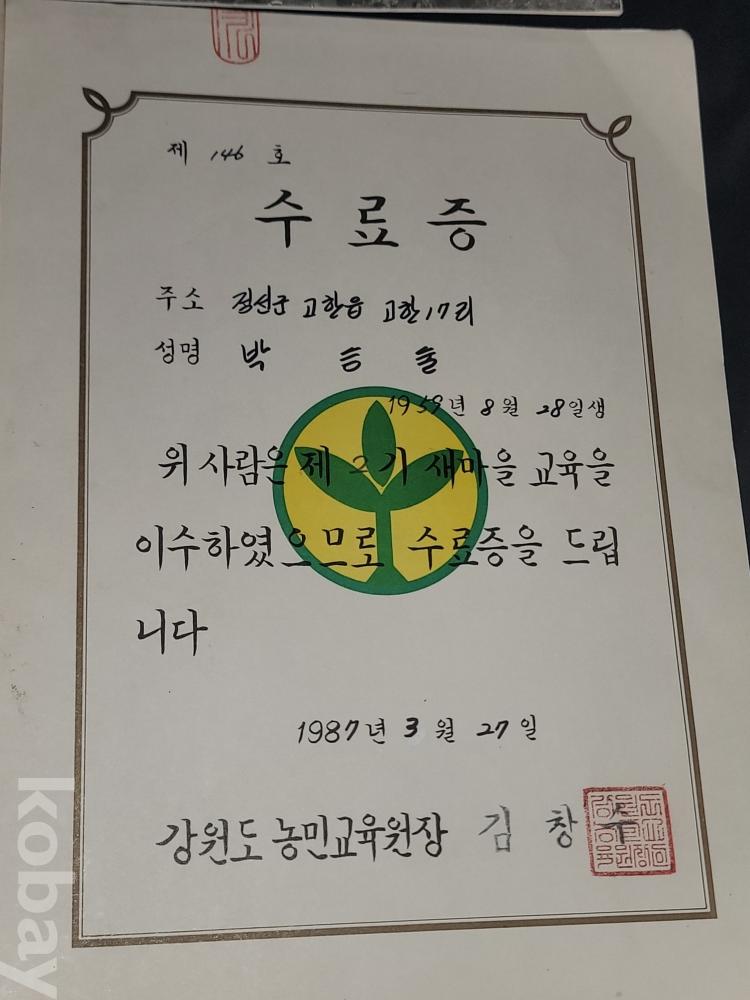 제 146 호
수료증
주소 정선군 고한읍 고한17리
성명 박 승 출
1959년 8월 28일생
위 사람은 제 2기 새마을 교육을
이수하였으므로 수료증을 드립
니다
1987년 3월 27일
강원도 농민교육원장 김 창 수
kobay